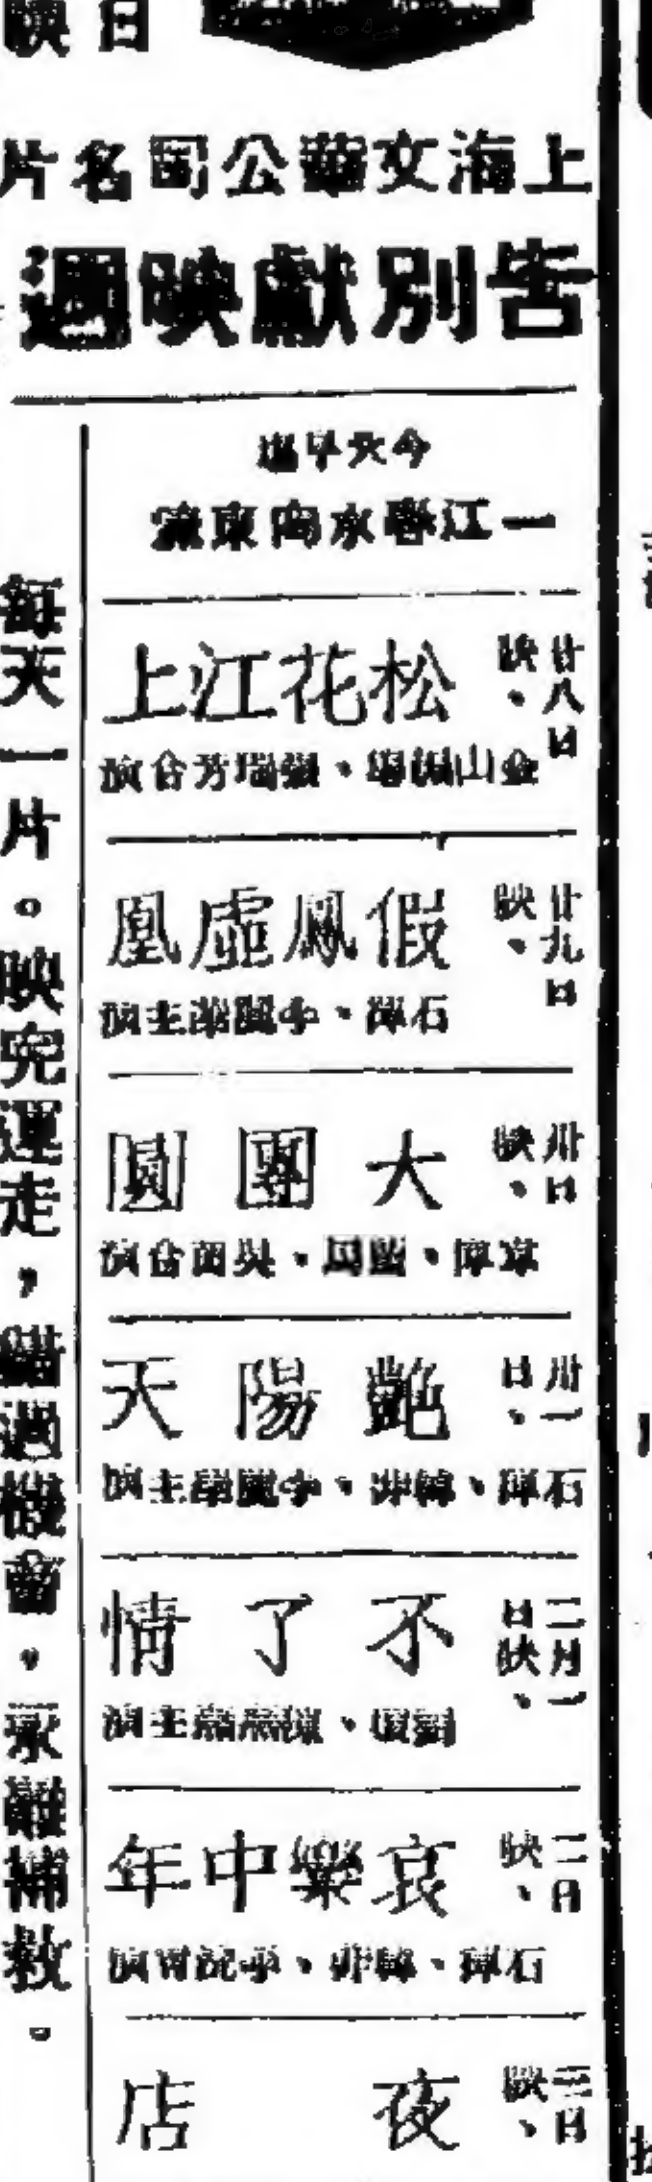 日映
上海文華公司名片
告別獻映週
今天早場
一江春水向東流
廿八日映、
松花江上
金山領導、張瑞芳合演
廿九日映、
假鳳虛凰
石揮、李麗華主演
卅日映、
大團圓
藍馬、吳茵合演
卅一日、
艷陽天
石揮、韓非、李麗華主演
二月一日映、
不了情
劉瓊、陳燕燕主演
二日映、
哀樂中年
石揮、韓非、
三日映、
夜店
每天一片。映完運走,錯過機會,永難補救。